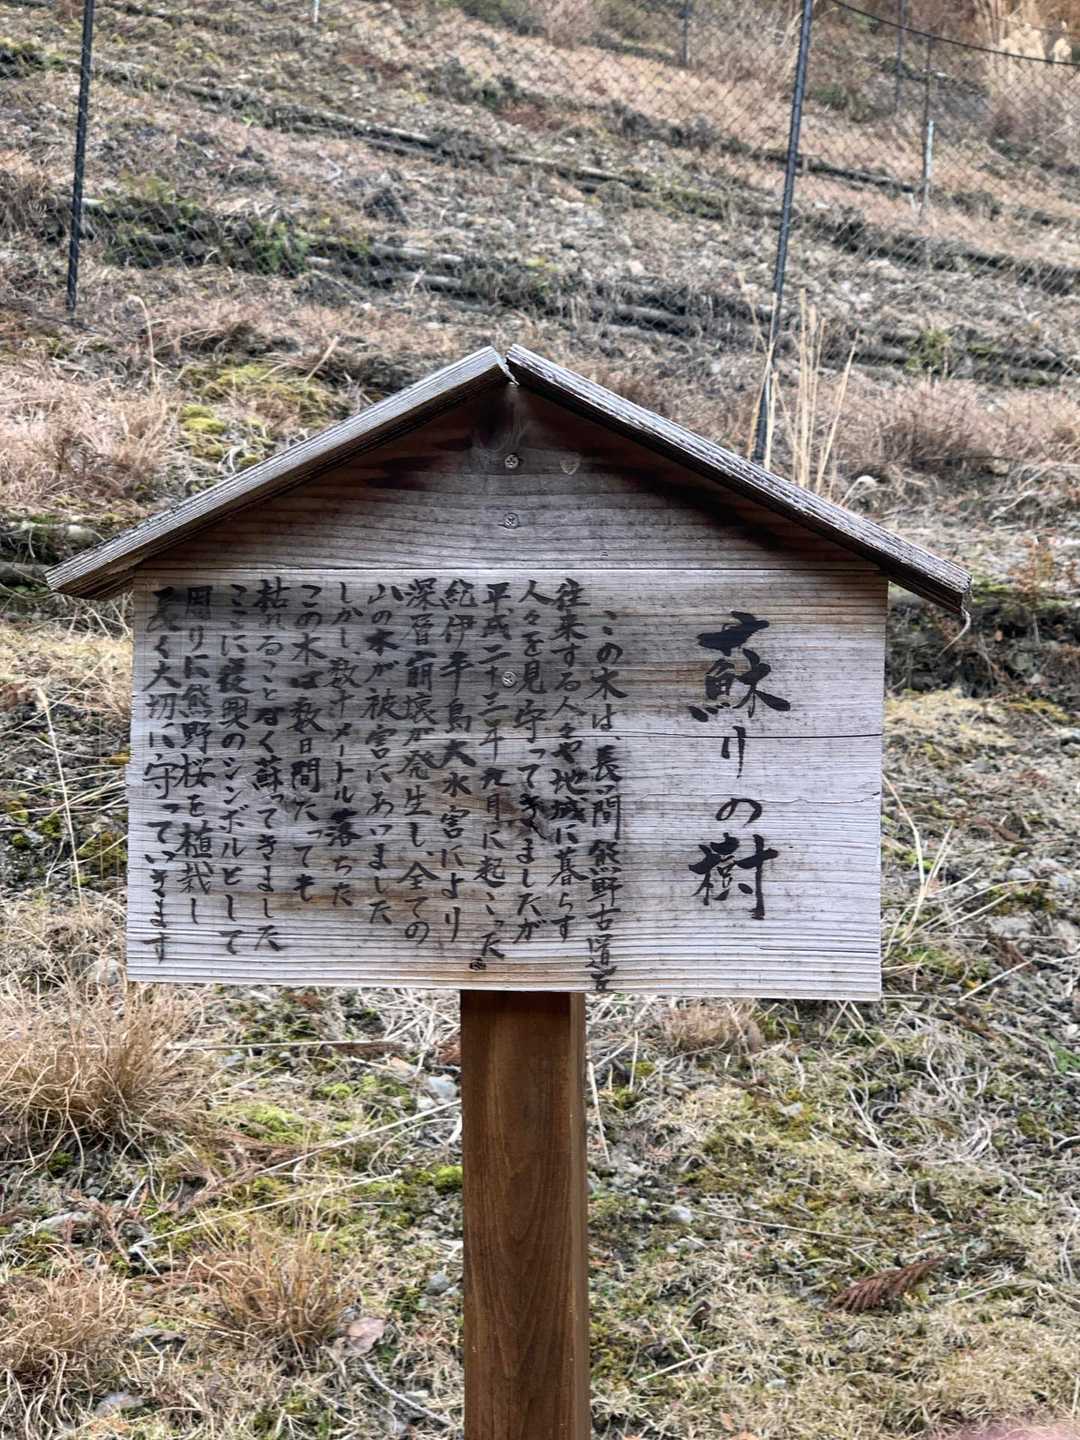 蘇りの樹
この木は、長い間熊野古道を
往来する人々や地域に暮らす
人々を見守ってきましたが
平成二十三年九月に起こった
紀伊半島大水害により
深層崩壊が発生し、全ての
山の木が被害にあいました
しかし、数十メートル落ちた
この木は数日間たっても
枯れることなく蘇ってきました
ここに復興のシンボルとして
周りに熊野桜を植栽し
長く大切に守っていきます